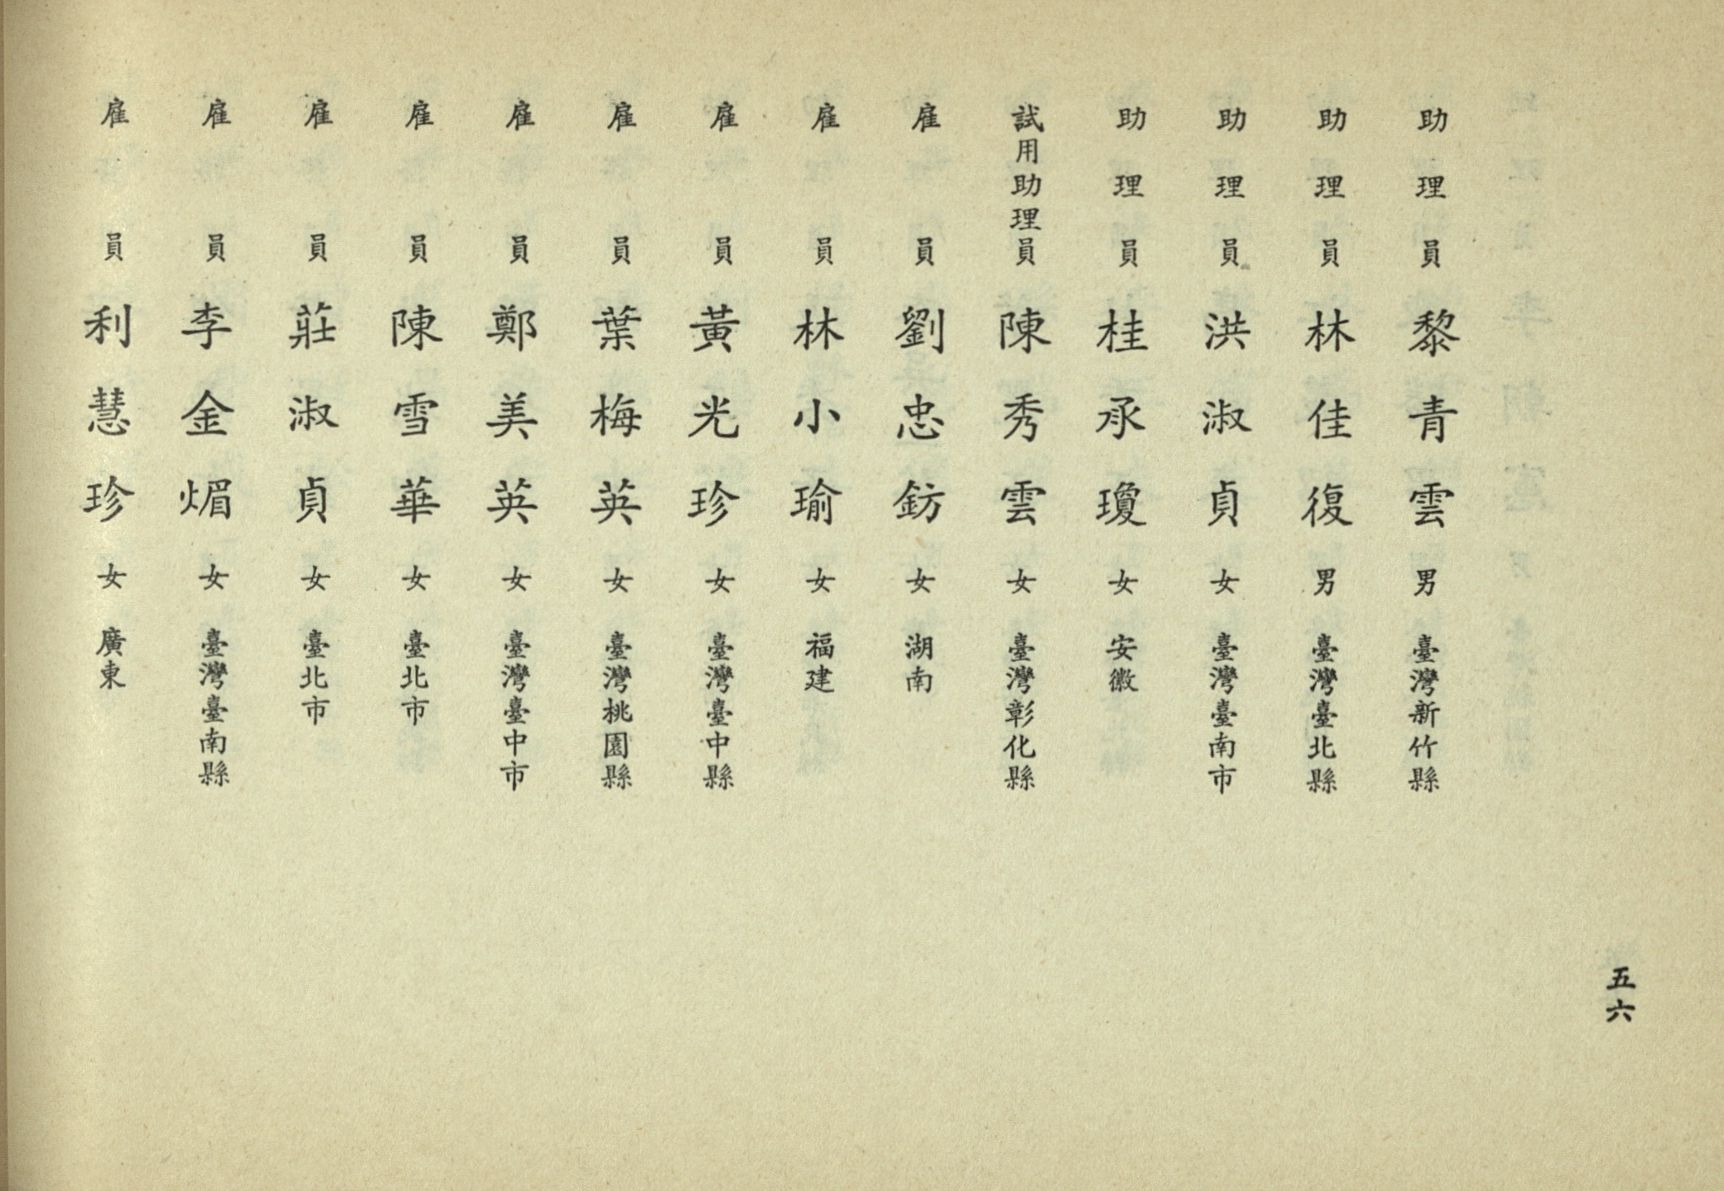 助理員 黎青雲 男 臺灣新竹縣
助理員 林佳復 男 臺灣臺北縣
助理員 洪淑貞 女 臺灣臺南市
助理員 桂承瓊 女 安徽
試用助理員 陳秀雲 女 臺灣彰化縣
雇員 劉忠鈁 女 湖南
雇員 林小瑜 女 福建
雇員 黃光珍 女 臺灣臺中縣
雇員 葉梅英 女 臺灣桃園縣
雇員 鄭美英 女 臺灣臺中市
雇員 陳雪華 女 臺北市
雇員 莊淑貞 女 臺北市
雇員 李金煝 女 臺灣臺南縣
雇員 利慧珍 女 廣東
五六